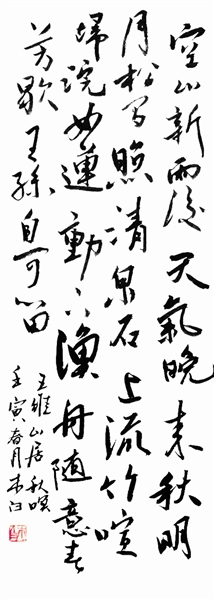 空山新雨後天氣晚来秋明
月松間照清泉石上流竹喧
歸浣女蓮動下漁舟随意春
芳歇王孫自可留
王維山居秋暝
壬寅春月